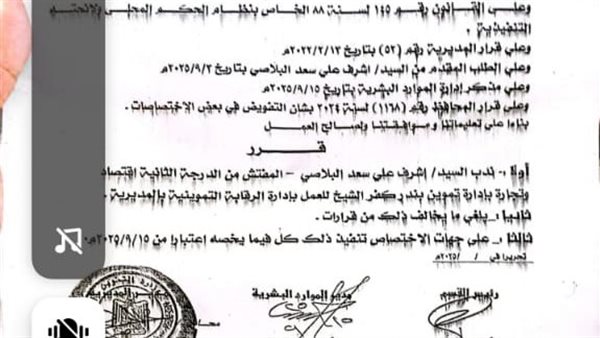 وعلى القانون رقم ١٤٥ لسنة ٨٨ الخاص بنظام الحكم المحلى ولائحته
التنفيذية .
وعلي قرار المديرية رقم (٥٢) بتاريخ ٢٠٢٢/٢/١٣م
وعلي الطلب المقدم من السيد/ اشرف علي سعد البلاصي بتاريخ ٢٠٢٥/٩/٢م
وعلي مذكر إدارة الموارد البشرية بتاريخ ٢٠٢٥/٩/١٥م
وعلي قرار المحافظ رقم (١١٦٨) لسنة ٢٠٢٤ بشان التفويض في بعض الاختصاصات .
بناءا علي تعليماتنا وموافقتنا ولصالح العمل
قرر
أولا :- ندب السيد/ إشرف علي سعد البلاصي - المفتش من الدرجة الثانية اقتصاد
وتجارة بإدارة تموين بندر كفر الشيخ للعمل بإدارة الرقابة التموينية بالمديرية .
ثانيا :- يلغي ما يخالف ذلك من قرارات .
ثالثا :- علي جهات الاختصاص تنفيذ ذلك كل فيما يخصه اعتبارا من ٢٠٢٥/٩/١٥م
تحريرا في / /٢٠٢٥م
رئيس القسم
مدير الموارد البشرية